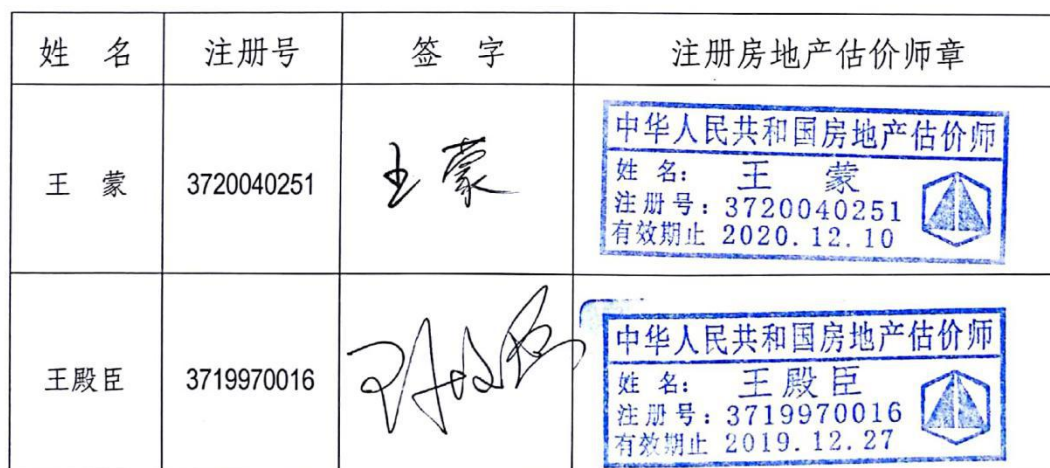 姓 名 注册号 签 字 注册房地产估价师章
王 蒙 3720040251 王蒙
中华人民共和国房地产估价师
姓 名: 王 蒙
注册号: 3720040251
有效期止 2020.12.10
王殿臣 3719970016 王殿臣
中华人民共和国房地产估价师
姓 名: 王殿臣
注册号: 3719970016
有效期止 2019.12.27